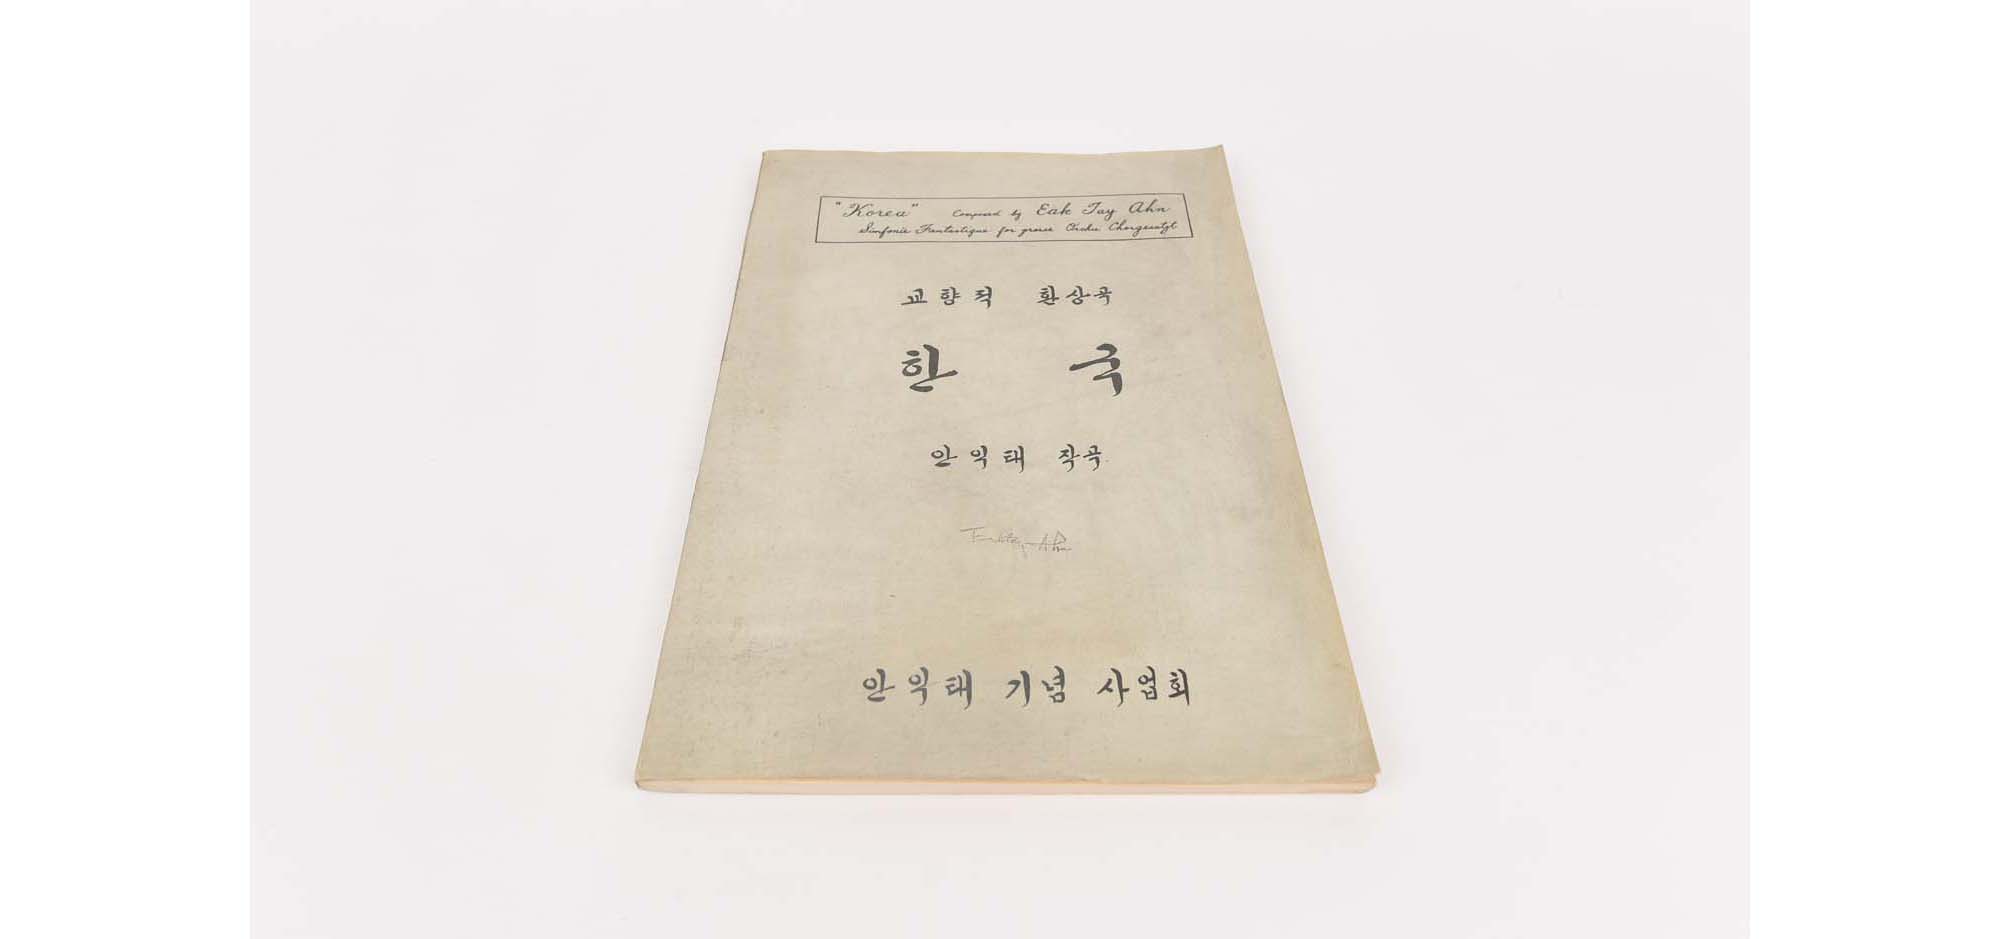 "Korea" Composed by Eak Tay Ahn
Sinfonie Fantastique for
교향적 환상곡
한 국
안익태 작곡
안익태 기념 사업회